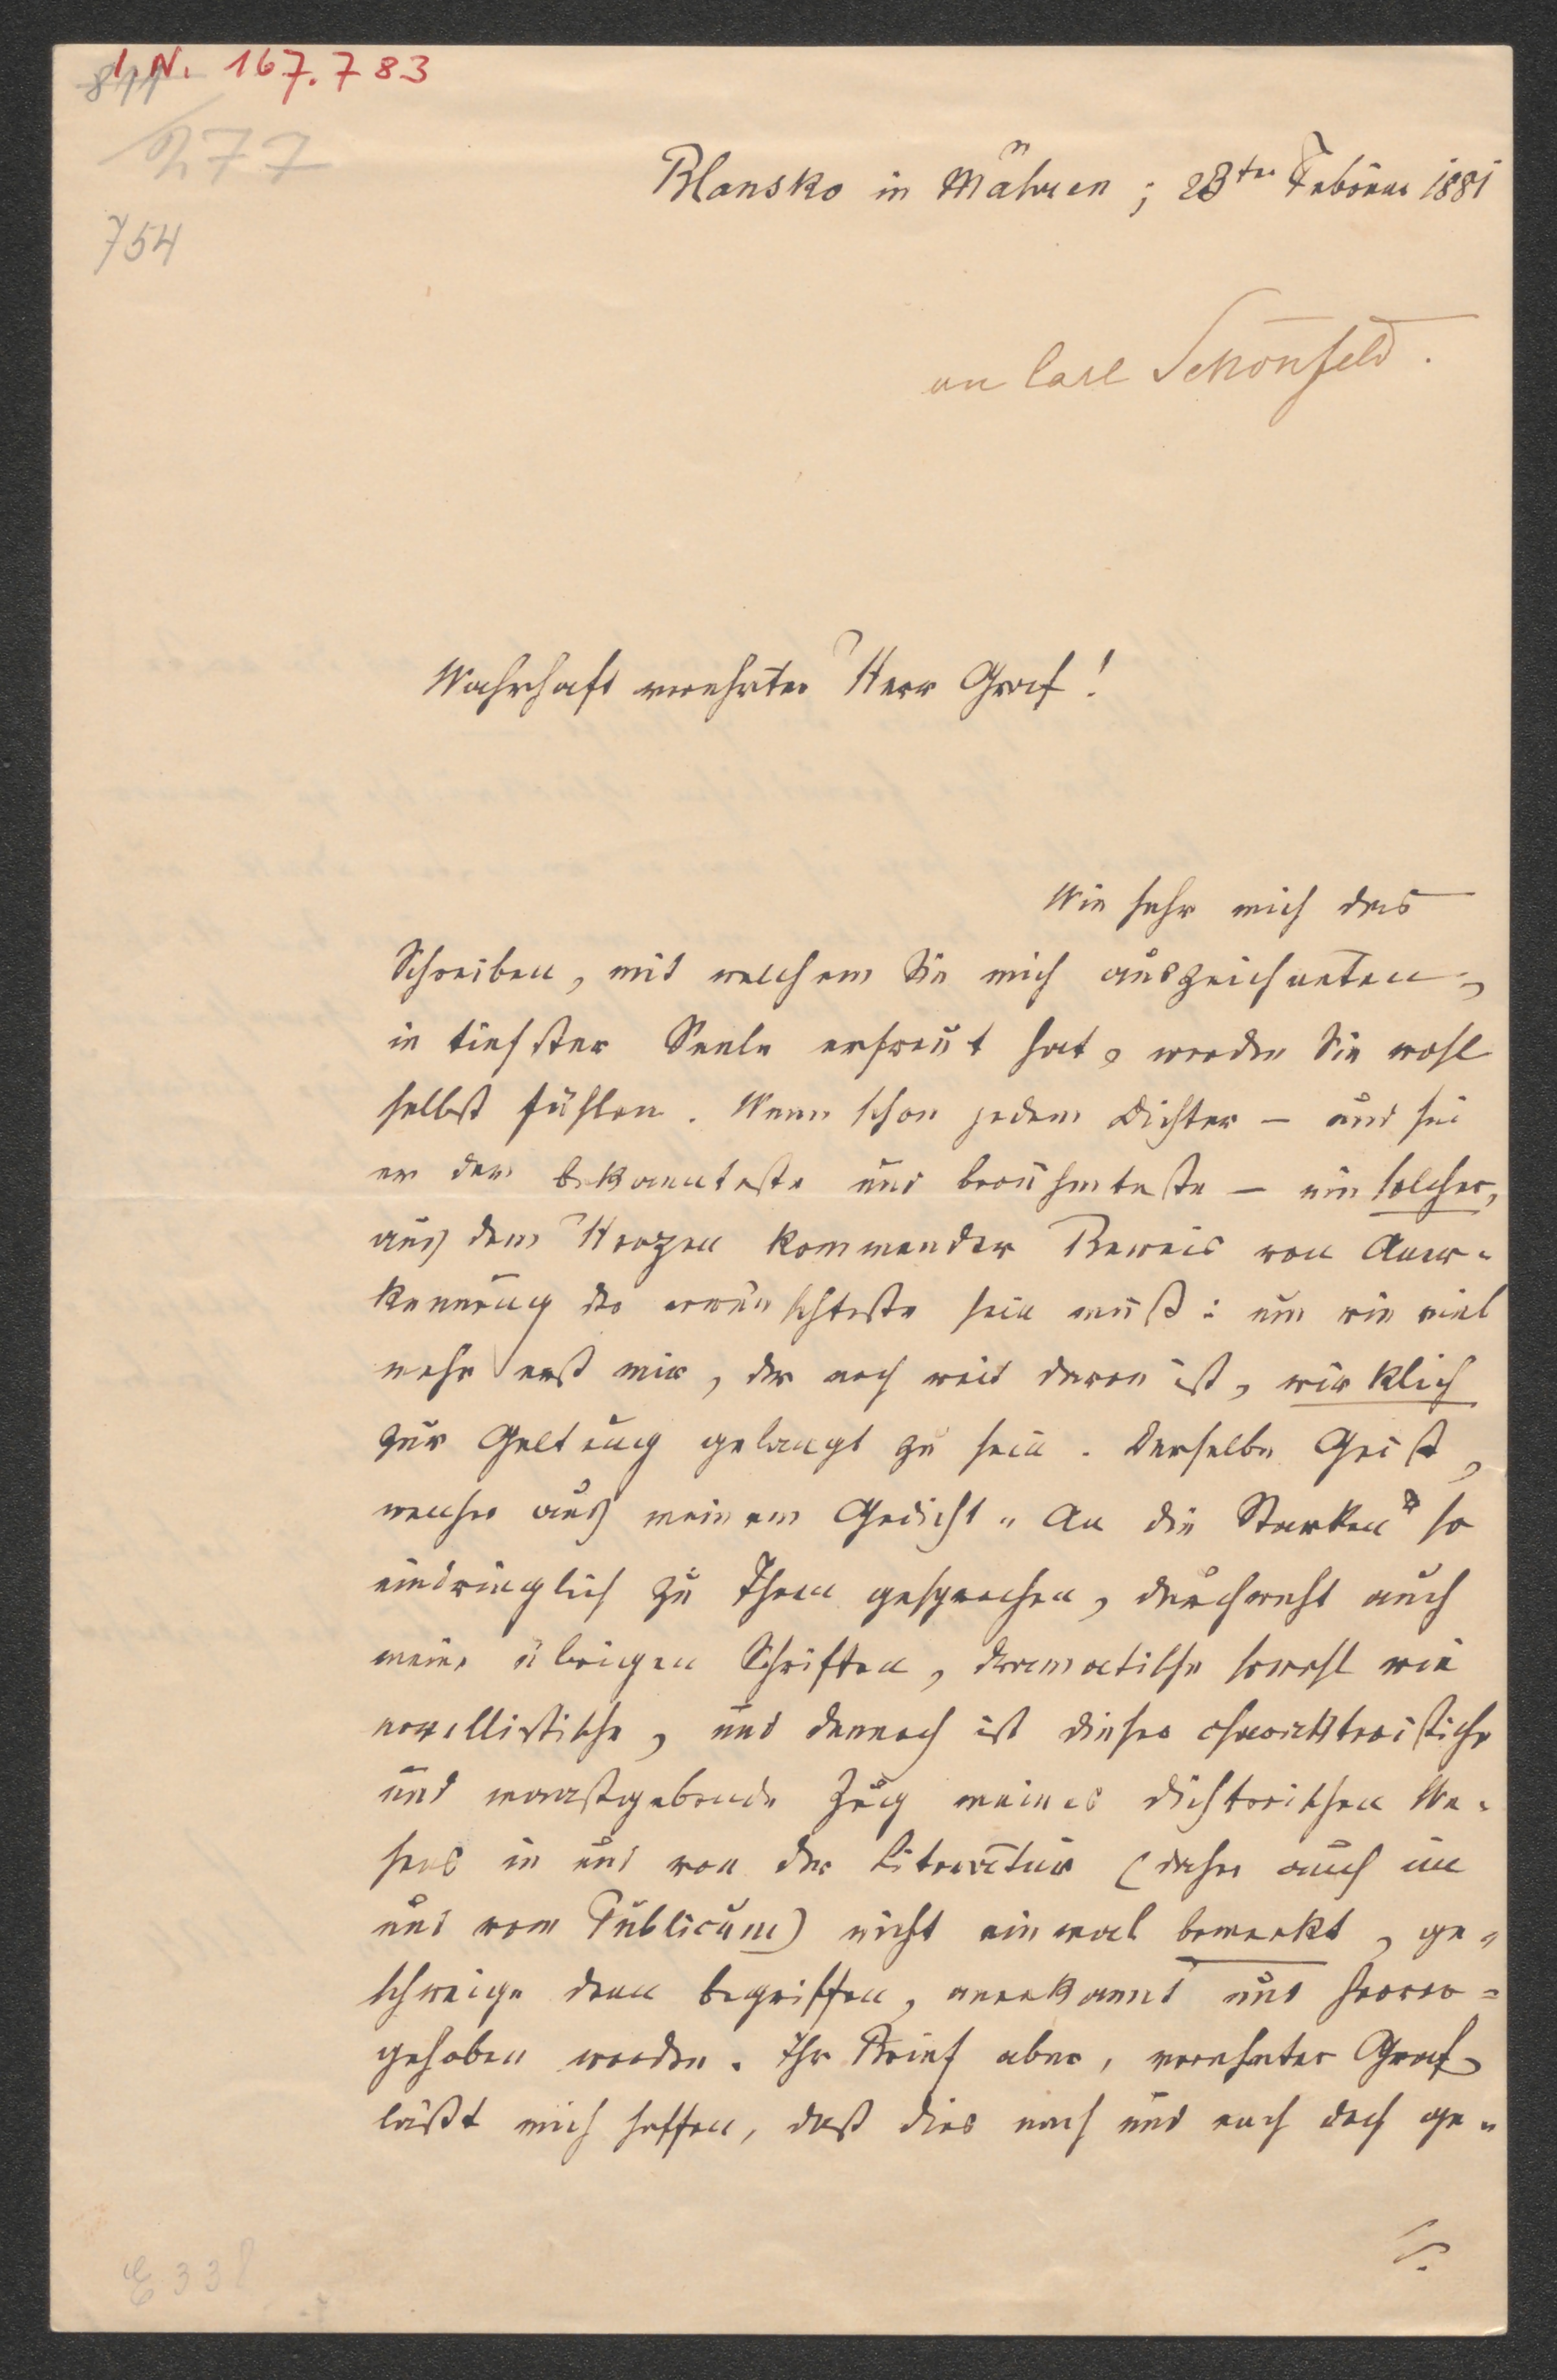 I. N. 167.783
277
754
Blansko in Mähren; 28ten Februar 1881
an Carl Schönfeld.
Wahrhaft verehrter Herr Graf!
Wie sehr mich das
Schreiben, mit welchem Sie mich auszeichneten,
in tiefster Seele erfreut hat, werden Sie wohl
selbst fühlen. Wenn schon jedem Dichter – und sei
er der bekannteste und berühmteste – ein solcher,
aus dem Herzen kommender Beweis von Aner-
kennung der erwünschteste sein muß: um wie viel
mehr erst mir, der noch weit davon ist, wirklich
zur Geltung gelangt zu sein. Derselbe Geist,
welcher aus meinem Gedicht „An die Starken" so
eindringlich zu Ihnen gesprochen, durchweht auch
meine übrigen Schriften, dramatische sowohl wie
novellistische, und dennoch ist dieser charakteristische
und maaßgebende Zug meines dichterischen We-
sens in und von der Literatur (daher auch im
und vom Publicum) nicht einmal bemerkt, ge-
schweige denn begriffen, anerkannt und hervor-
gehoben worden. Ihr Brief aber, verehrter Graf
läßt mich hoffen, daß dies nach und nach doch ge-
E 338